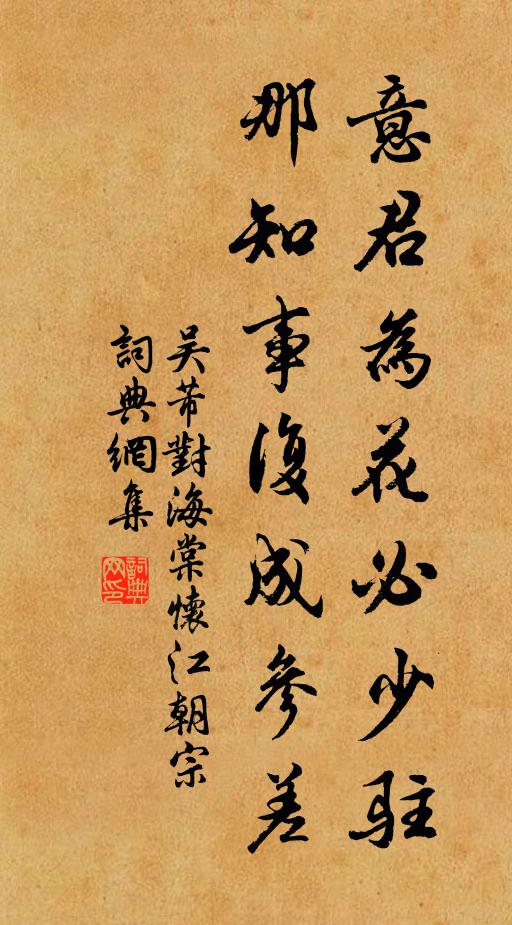 意君為花必少駐
那知事復成參差
吴芾對海棠懷江朝宗
詞典網集
詞典网印